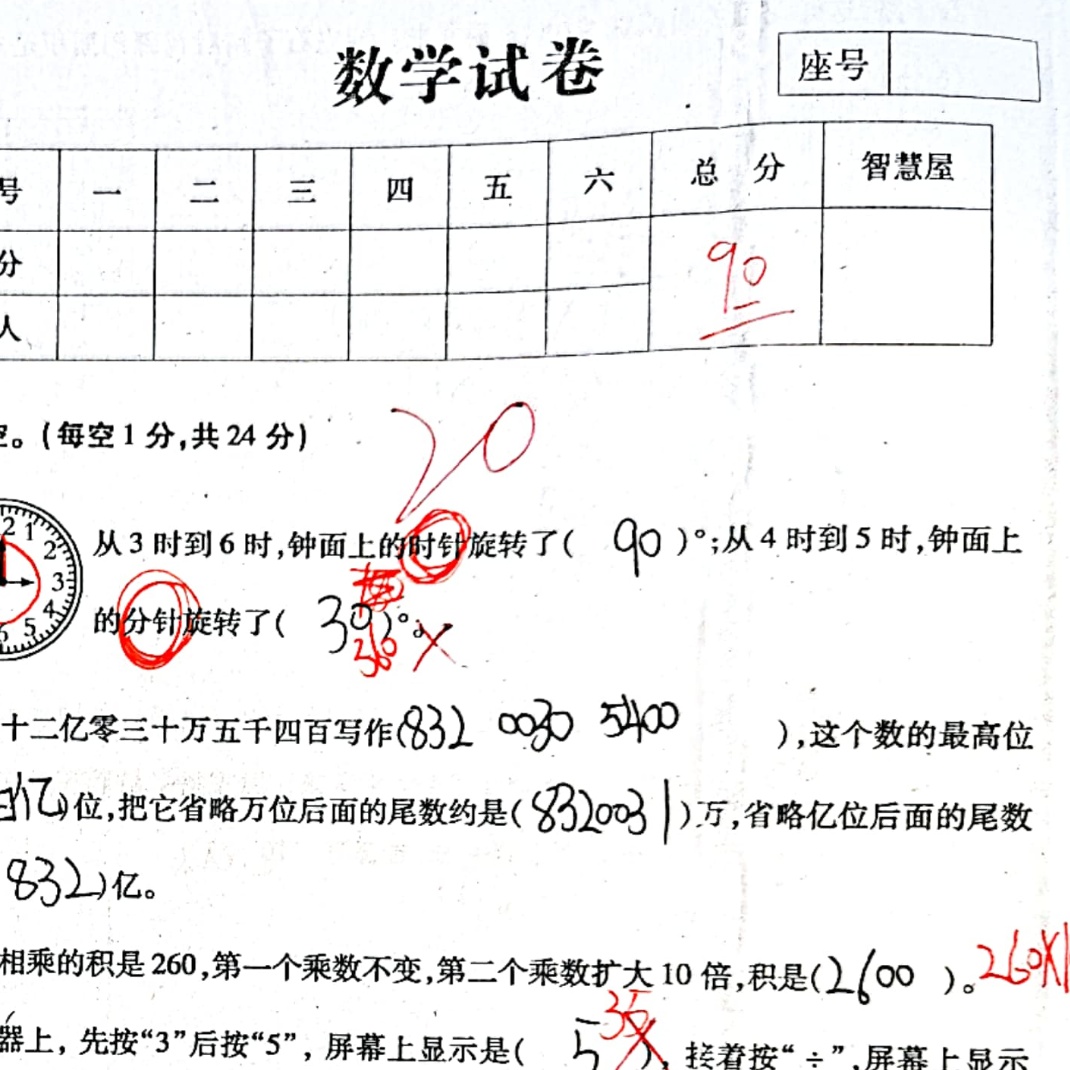 数学试卷
座号
号 一 二 三 四 五 六 总分 智慧屋
分 90
人
20
空。(每空1分,共24分)
从3时到6时,钟面上的时针旋转了( 90 )°;从4时到5时,钟面上
的分针旋转了( 30 )°。
360 ×
十二亿零三十万五千四百写作(832 0030 5400 ),这个数的最高位
百亿)位,把它省略万位后面的尾数约是(8320031)万,省略亿位后面的尾数
832)亿。
相乘的积是260,第一个乘数不变,第二个乘数扩大10倍,积是(2600 )。260×1
35
器上,先按“3”后按“5”,屏幕上显示是( 5 ),接着按“÷”,屏幕上显示